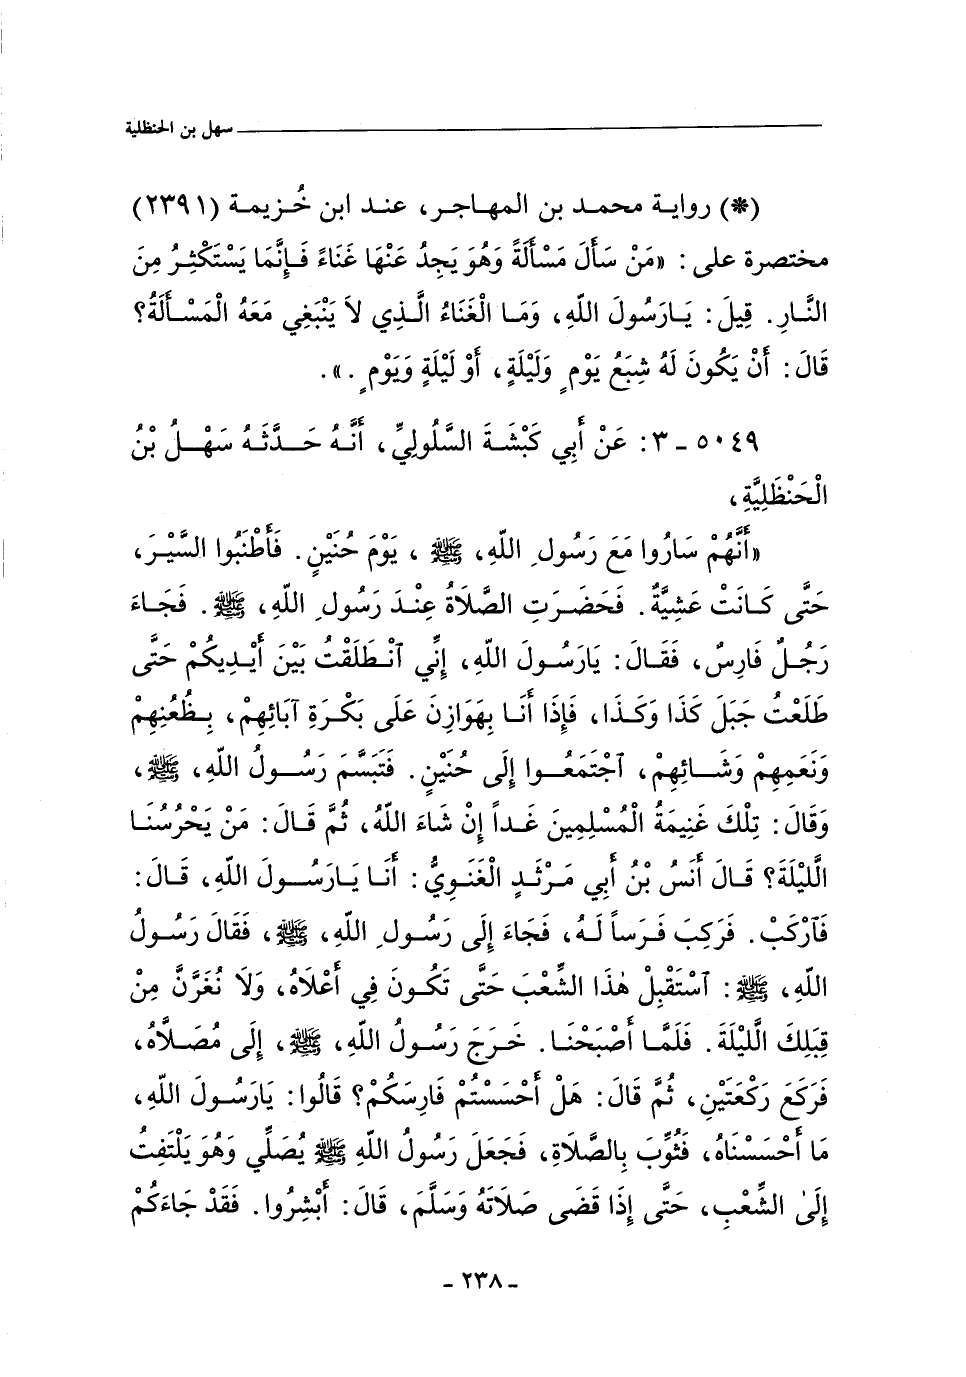 سهل بن الحنظلية
(*) رواية محمد بن المهاجر، عند ابن خُزيمة (٢٣٩١)
مختصرة على: «مَنْ سَأَلَ مَسْأَلَةً وَهُوَ يَجِدُ عَنْهَا غَنَاءً فَإِنَّمَا يَسْتَكْثِرُ مِنَ
النَّارِ. قِيلَ: يَارَسُولَ اللهِ، وَمَا الْغَنَاءُ الَّذِي لاَ يَنْبَغِي مَعَهُ الْمَسْأَلَةُ؟
قَالَ: أَنْ يَكُونَ لَهُ شِبَعُ يَوْمٍ وَلَيْلَةٍ، أَوْ لَيْلَةٍ وَيَوْمٍ.».
٥٠٤٩ - ٣: عَنْ أَبِي كَبْشَةَ السَّلُولِيِّ، أَنَّهُ حَدَّثَهُ سَهْلُ بْنُ
الْحَنْظَلِيَّةِ،
«أَنَّهُمْ سَارُوا مَعَ رَسُولِ اللهِ، ﷺ ، يَوْمَ حُنَيْنٍ. فَأَطْنَبُوا السَّيْرَ،
حَتَّى كَانَتْ عَشِيَّةٌ. فَحَضَرَتِ الصَّلَاةُ عِنْدَ رَسُولِ اللهِ، ﷺ. فَجَاءَ
رَجُلٌ فَارِسٌ، فَقَالَ: يَارَسُولَ اللهِ، إِنِّي ٱنْطَلَقْتُ بَيْنَ أَيْدِيكُمْ حَتَّى
طَلَعْتُ جَبَلَ كَذَا وَكَذَا، فَإِذَا أَنَا بِهَوَازِنَ عَلَى بَكْرَةِ آبَائِهِمْ، بِظُعُنِهِمْ
وَنَعَمِهِمْ وَشَائِهِمْ، ٱجْتَمَعُوا إِلَى حُنَيْنٍ. فَتَبَسَّمَ رَسُولُ اللهِ، ﷺ،
وَقَالَ: تِلْكَ غَنِيمَةُ الْمُسْلِمِينَ غَداً إِنْ شَاءَ اللهُ، ثُمَّ قَالَ: مَنْ يَحْرُسُنَا
الَّلَيْلَةَ؟ قَالَ أَنَسُ بْنُ أَبِي مَرْثَدٍ الْغَنَوِيُّ: أَنَا يَارَسُولَ اللهِ، قَالَ:
فَٱرْكَبْ. فَرَكِبَ فَرَساً لَهُ، فَجَاءَ إِلَى رَسُولِ اللهِ، ﷺ، فَقَالَ رَسُولُ
اللهِ، ﷺ: ٱسْتَقْبِلْ هٰذَا الشِّعْبَ حَتَّى تَكُونَ فِي أَعْلَاهُ، وَلَا نُغَرَّنَّ مِنْ
قِبَلِكَ الَّلَيْلَةَ. فَلَمَّا أَصْبَحْنَا. خَرَجَ رَسُولُ اللهِ، ﷺ، إِلَى مُصَلَّاهُ،
فَرَكَعَ رَكْعَتَيْنِ، ثُمَّ قَالَ: هَلْ أَحْسَسْتُمْ فَارِسَكُمْ؟ قَالُوا: يَارَسُولَ اللهِ،
مَا أَحْسَسْنَاهُ، فَثُوِّبَ بِالصَّلَاةِ، فَجَعَلَ رَسُولُ اللهِ ﷺ يُصَلِّي وَهُوَ يَلْتَفِتُ
إِلَىٰ الشِّعْبِ، حَتَّى إِذَا قَضَى صَلَاتَهُ وَسَلَّمَ، قَالَ: أَبْشِرُوا. فَقَدْ جَاءَكُمْ
- ٢٣٨ -